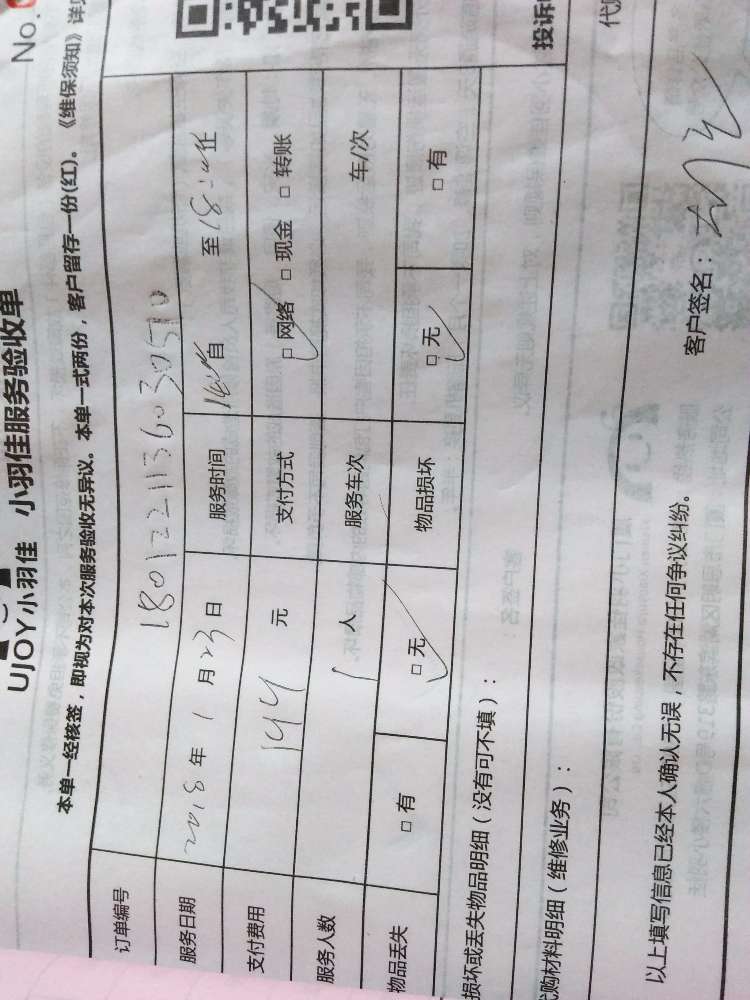 No.
UJOY小羽佳 小羽佳服务验收单
本单一经核签，即视为对本次服务验收无异议。本单一式两份，客户留存一份(红)。《维保须知》详见
订单编号 1801221136030510
服务日期 2018 年 1 月 23 日 服务时间 自 至 18:00 止
支付费用 144 元 支付方式 □ 网络 □ 现金 □ 转账
服务人数 1 人 服务车次 车/次
物品丢失 □ 有 □ 无 物品损坏 □ 无 □ 有
损坏或丢失物品明细（没有可不填）：
购材料明细（维修业务）：
投诉
代
以上填写信息已经本人确认无误，不存在任何争议纠纷。 客户签名：